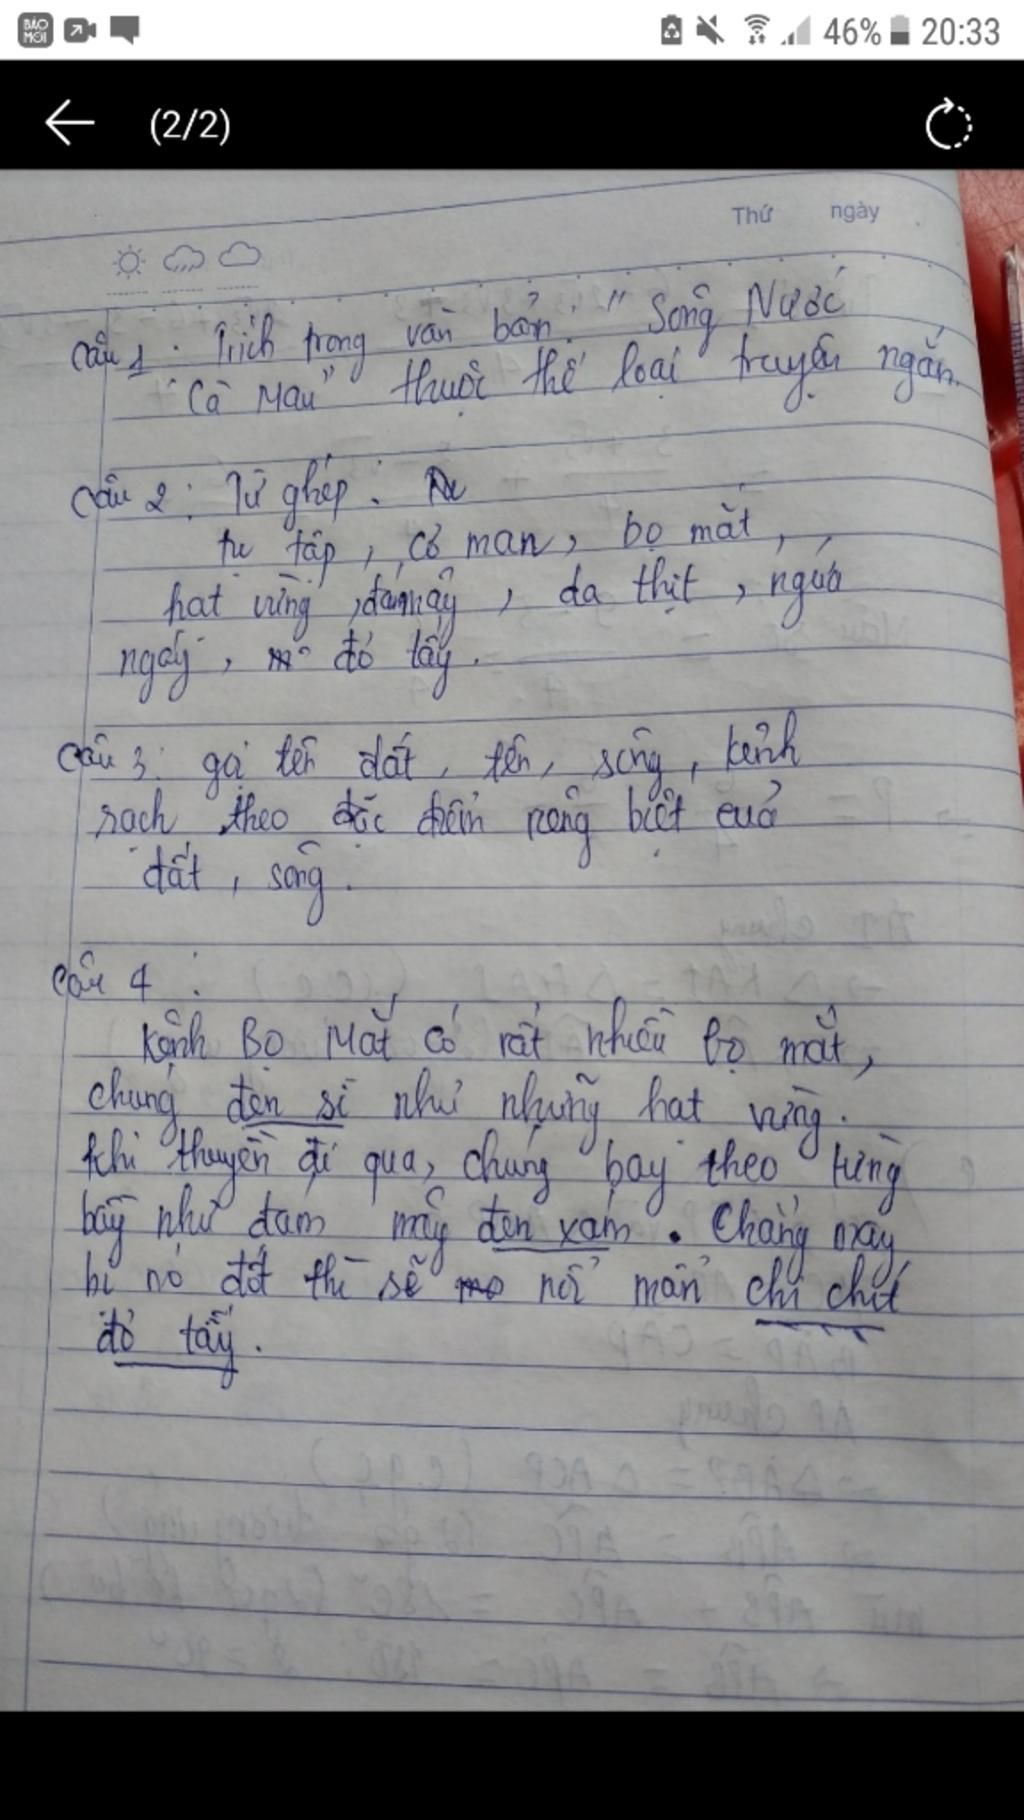 BÁO MỚI
46% 20:33
(2/2)
Thứ ngày
Câu 1: Trích trong văn bản: "Sông Nước
Cà Mau" thuộc thể loại truyện ngắn.
Câu 2: Từ ghép:
tụ tập, cỏ man, bọ mắt,
hạt vừng, đám mây, da thịt, ngứa
ngáy, đỏ tấy.
Câu 3: gọi tên đất, tên, sông, kênh
rạch theo đặc điểm riêng biệt của
đất, sông.
Câu 4:
Kênh Bọ Mắt có rất nhiều bọ mắt,
chúng đen sì như những hạt vừng.
Khi thuyền đi qua, chúng bay theo từng
bầy như đám mây đen xám. Chẳng may
bị nó đốt thì sẽ nổi mẩn chi chít
đỏ tấy.